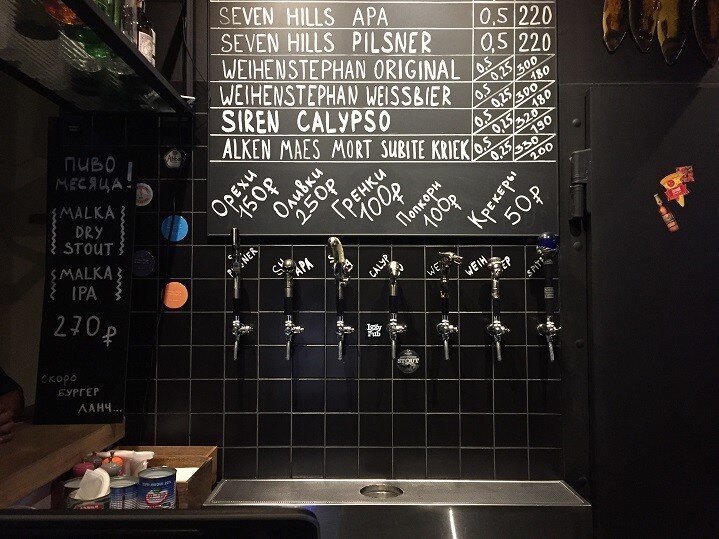 SEVEN HILLS APA 0,5 220
SEVEN HILLS PILSNER 0,5 220
WEIHENSTEPHAN ORIGINAL 0,5 0,25 300 180
WEIHENSTEPHAN WEISSBIER 0,5 0,25 300 180
SIREN CALYPSO 0,5 0,25 320 190
ALKEN MAES MORT SUBITE KRIEK 0,5 0,25 330 200
ОРЕХИ 150₽
ОЛИВКИ 250₽
ГРЕНКИ 100₽
ПОПКОРН 100₽
КРЕКЕРЫ 50₽
ПИВО
МЕСЯЦА!
MALKA
DRY
STOUT
MALKA
IPA
270₽
СКОРО
БУРГЕР
ЛАНЧ...
PILSNER
APA
Izzy
Pub
STOUT